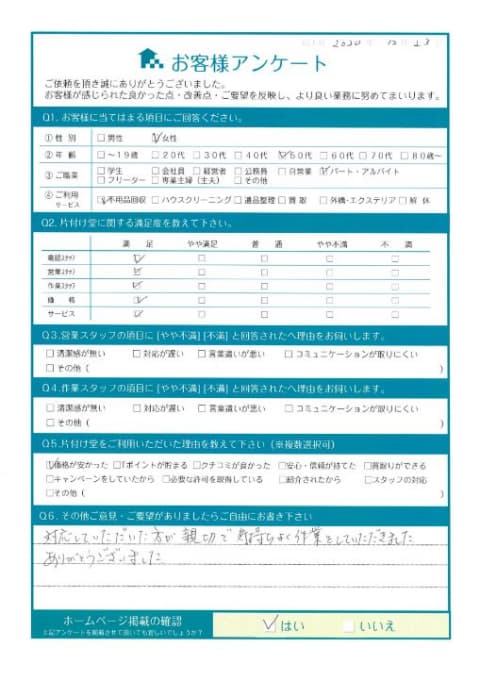 2020年 12月 23
お客様アンケート
ご依頼を頂き誠にありがとうございました。
お客様が感じられた良かった点・改善点・ご要望を反映し、より良い業務に努めてまいります。
Q1. お客様に当てはまる項目にご回答ください。
①性 別 □男性 ☑女性
②年 齢 □～19歳 □20代 □30代 □40代 ☑50代 □60代 □70代 □80歳～
③ご職業 □学生 □会社員 □経営者 □公務員 □自営業 ☑パート・アルバイト
□フリーター □専業主婦(主夫) □その他
④ご利用サービス ☑不用品回収 □ハウスクリーニング □遺品整理 □買取 □外構・エクステリア □解体
Q2. 片付け堂に関する満足度を教えて下さい。
満 足 やや満足 普 通 やや不満 不 満
電話スタッフ ☑ □ □ □ □
営業スタッフ ☑ □ □ □ □
作業スタッフ ☑ □ □ □ □
価 格 ☑ □ □ □ □
サービス ☑ □ □ □ □
Q3.営業スタッフの項目に[やや不満][不満]と回答されたへ理由をお伺いします。
□清潔感が無い □対応が遅い □言葉遣いが悪い □コミュニケーションが取りにくい
□その他( )
Q4.作業スタッフの項目に[やや不満][不満]と回答されたへ理由をお伺いします。
□清潔感が無い □対応が遅い □言葉遣いが悪い □コミュニケーションが取りにくい
□その他( )
Q5.片付け堂をご利用いただいた理由を教えて下さい(※複数選択可)
☑価格が安かった □Tポイントが貯まる □クチコミが良かった □安心・信頼が持てた □買取りができる
□キャンペーンをしていたから □必要な許可を取得している □紹介されたから □スタッフの対応
□その他( )
Q6. その他ご意見・ご要望がありましたらご自由にお書き下さい
対応していただいた方が親切で気持ちよく作業をしていただきました
ありがとうございました
ホームページ掲載の確認 ☑はい □いいえ
上記アンケートを掲載させて頂いても宜しいでしょうか?